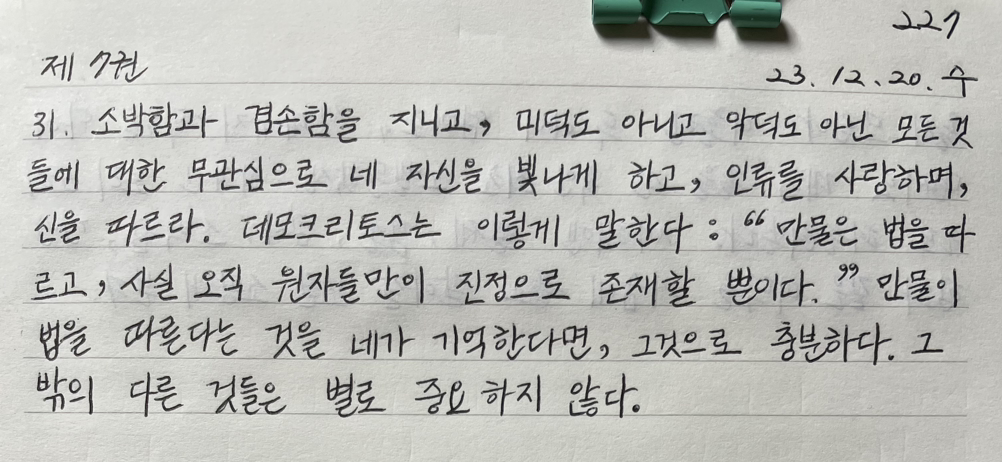 227
제 7권
23. 12. 20. 수
31. 소박함과 겸손함을 지니고, 미덕도 아니고 악덕도 아닌 모든 것
들에 대한 무관심으로 네 자신을 빛나게 하고, 인류를 사랑하며,
신을 따르라. 데모크리토스는 이렇게 말한다 : “만물은 법을 따
르고, 사실 오직 원자들만이 진정으로 존재할 뿐이다.” 만물이
법을 따른다는 것을 네가 기억한다면, 그것으로 충분하다. 그
밖의 다른 것들은 별로 중요하지 않다.